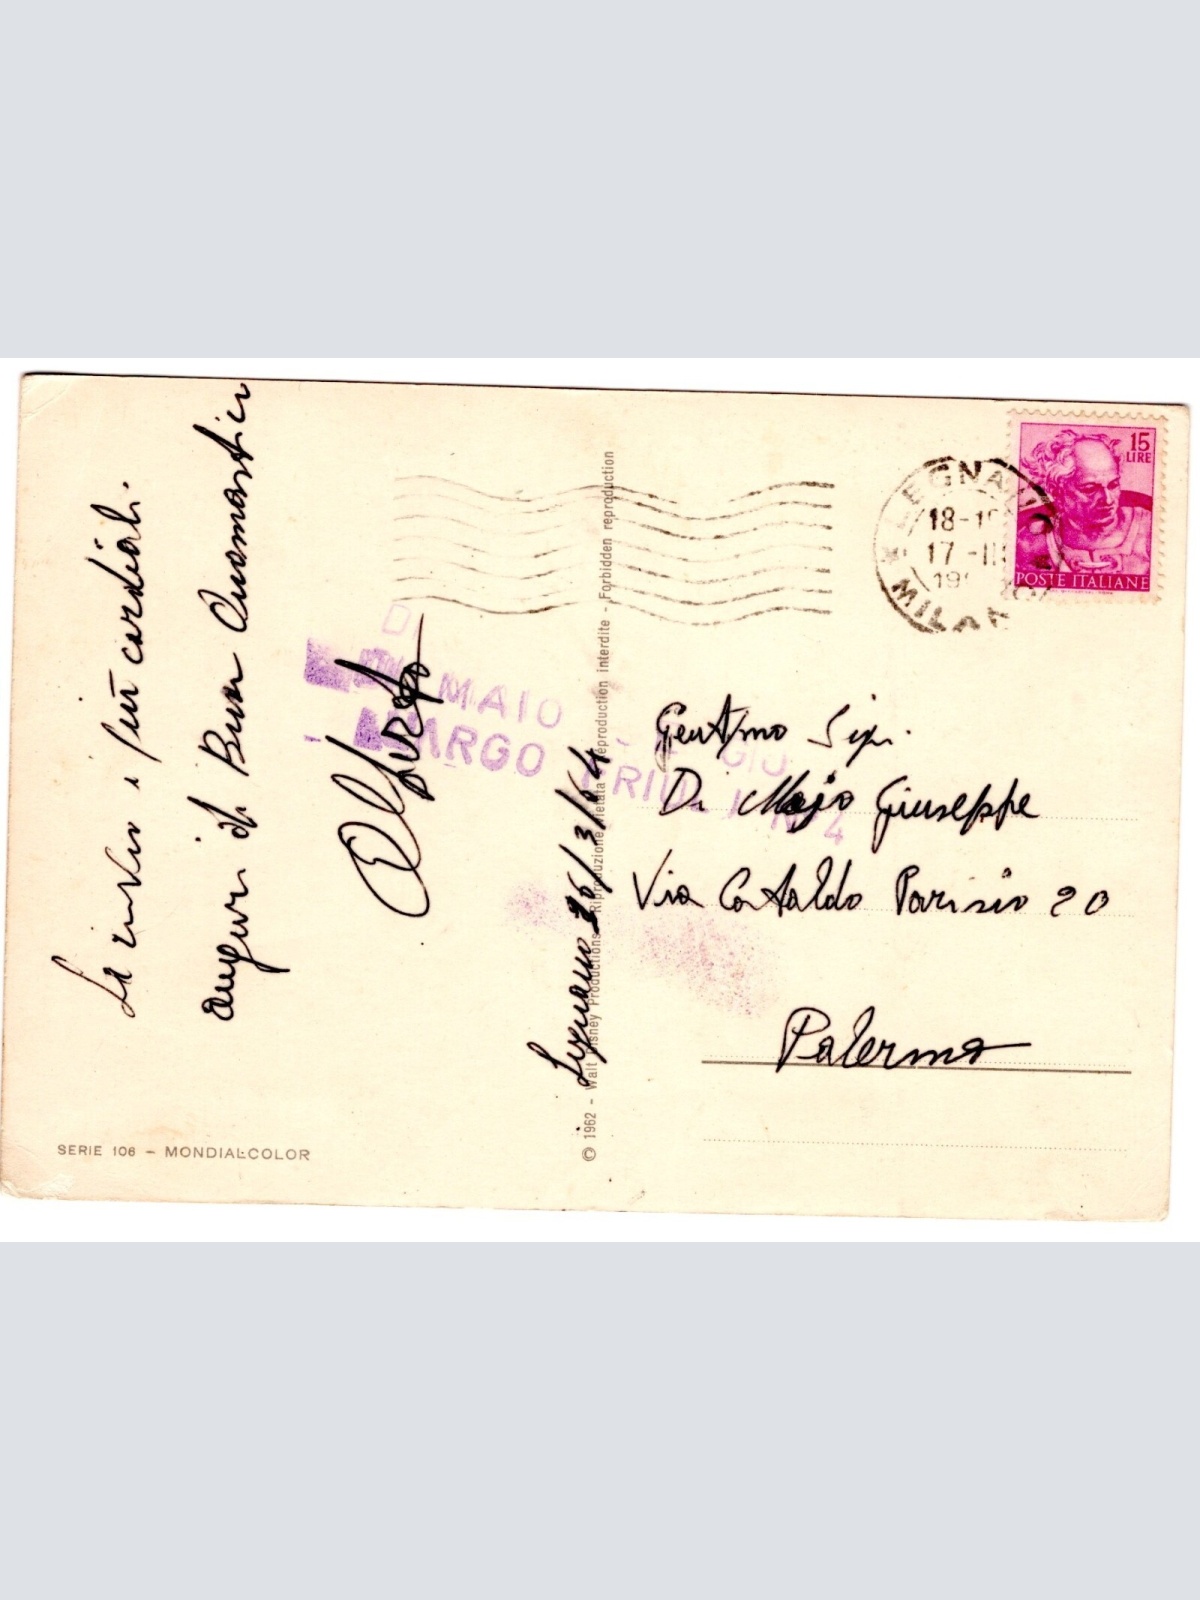 Le invio i più cordiali
auguri di Buon Onomastico
Alfredo
Legnano 16/3/64
SERIE 106 – MONDIAL-COLOR
© 1962 - Walt Disney Productions - Riproduzione vietata - Reproduction interdite - Forbidden reproduction
15
LIRE
POSTE ITALIANE
LEGNANO
18-19
17 -III
MILANO
DI MAIO
LARGO FRIULI N. 4
Gent/mo Sig.
Di Majo Giuseppe
Via Cataldo Parisio 20
Palermo